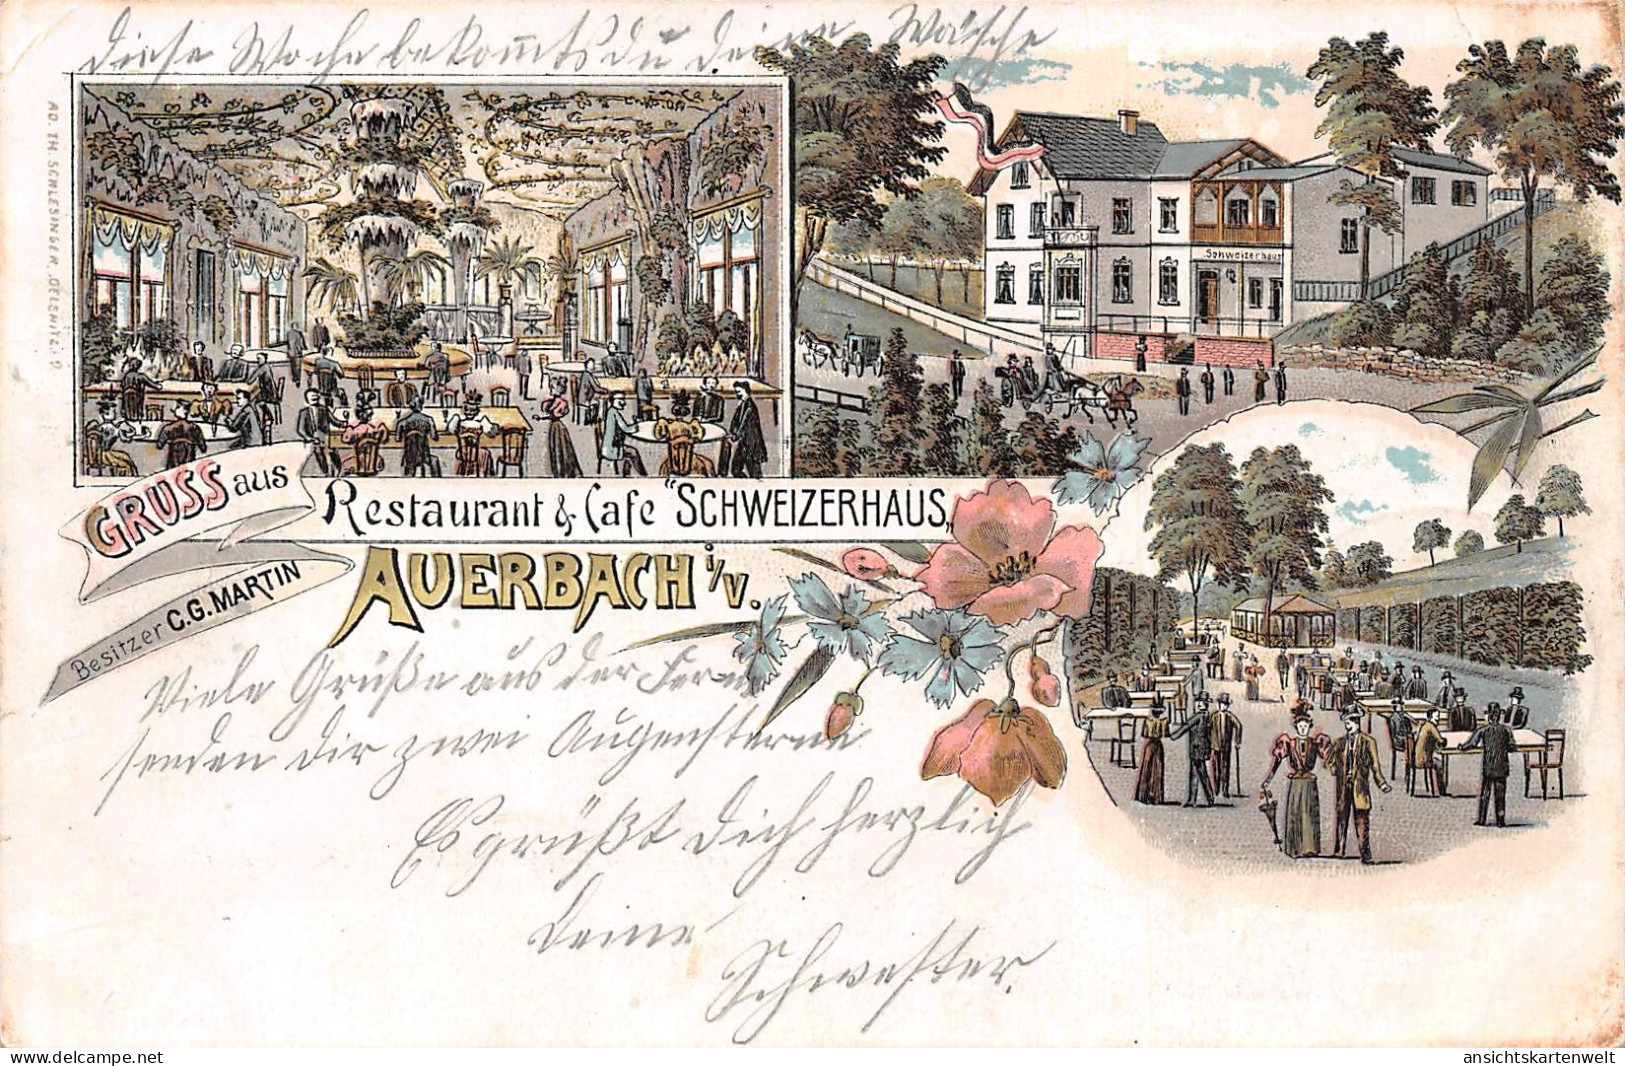 diese Woche bekom̅ts du deine Wäsche
AD. TH. SCHLESINGER, OELSNITZ
Schweizerhaus
GRUSS aus
Restaurant & Cafe "SCHWEIZERHAUS„
AUERBACH i/V.
Besitzer C.G. MARTIN
Viele Grüße aus der Ferne
senden dir zwei Augensterne
Es grüßt dich herzlich
deine
Schwester.
delcampe.net
ansichtskartenwelt